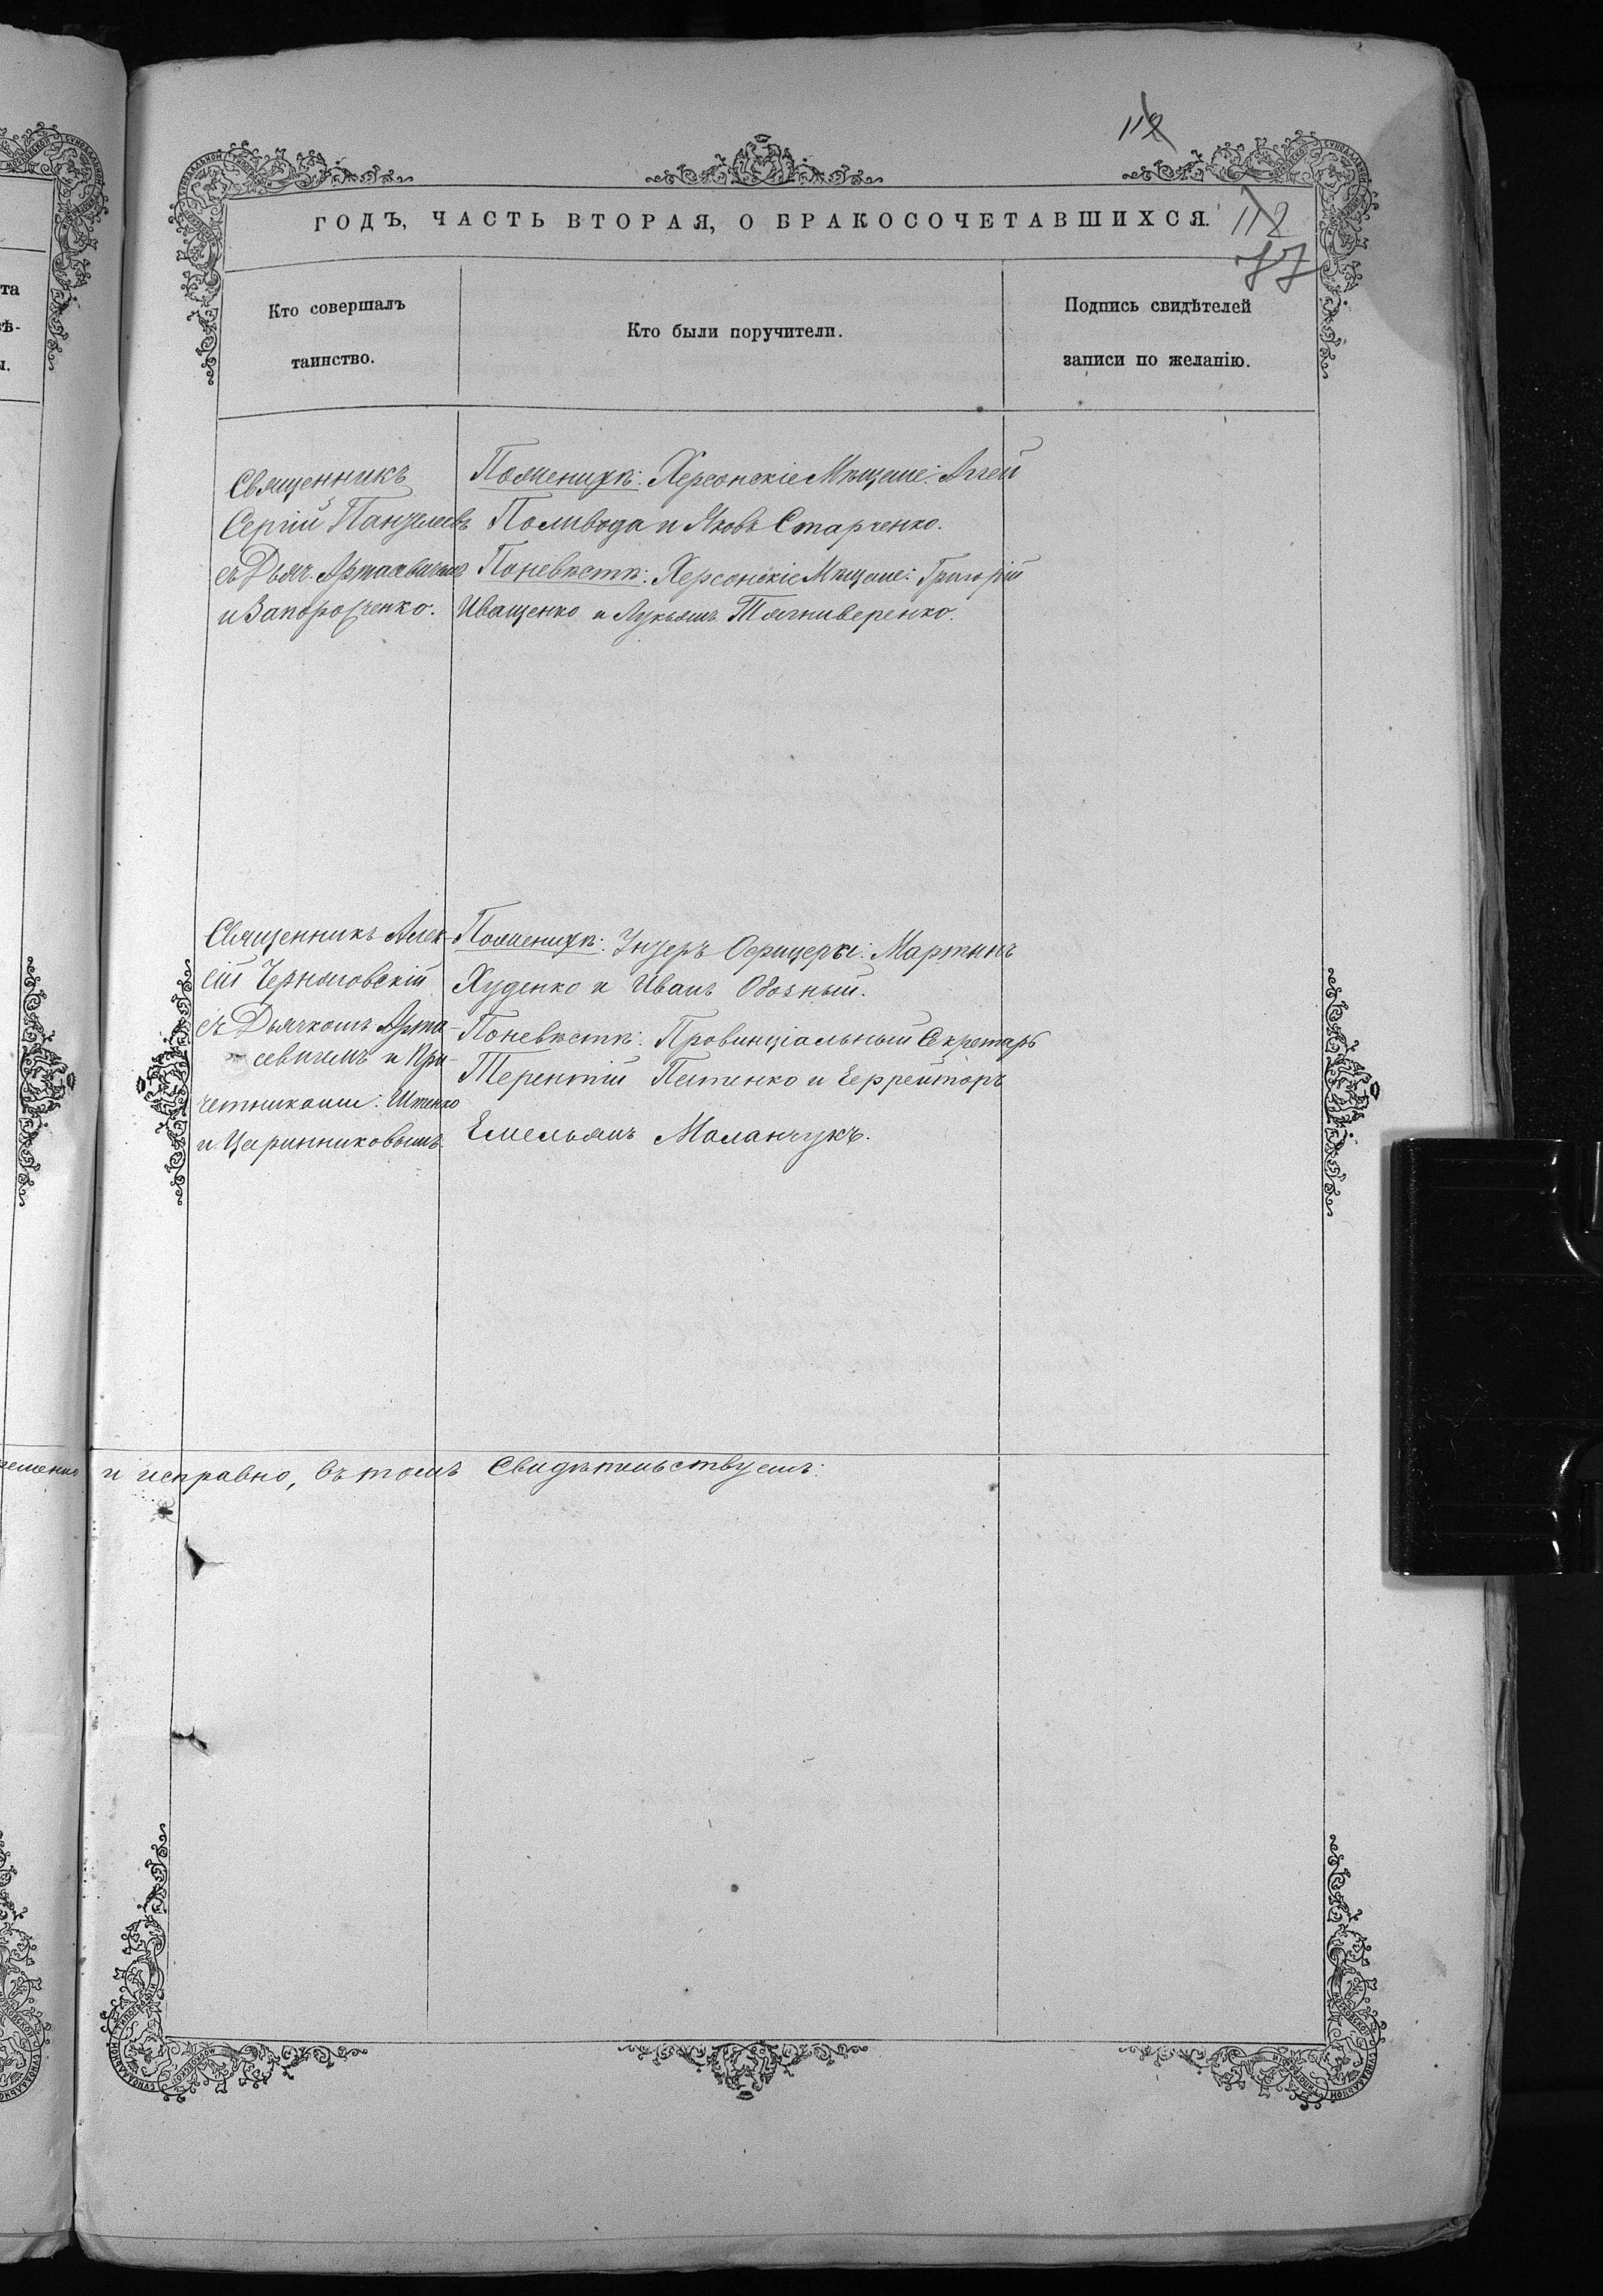 112
ГОДЪ, ЧАСТЬ ВТОРАЯ, О БРАКОСОЧЕТАВШИХСЯ.
112
77
Кто совершалъ
таинство.
Кто были поручители.
Подпись свидѣтелей
записи по желанію.
Священникъ
Сергій
съ Дьяч.
и Запорощенко.
По женихѣ: Херсонскіе Мѣщане: Аггей
Поливода и Яковъ Старченко.
По невѣстѣ: Херсонскіе Мѣщане: Григорій
Иващенко и Лукьянъ Тягниверенко.
Священникъ Алек-
сій Черноловскій
съ Дьячкомъ Арта-
севичемъ и При-
четниками:
и Царинниковымъ.
По женихѣ: Унтеръ Офицеры: Мартинъ
Худенко и Иванъ Обозный.
По невѣстѣ: Провинціальный Секретарь
Терентій и Ефрейторъ
Емельянъ Маланчукъ.
и исправно, въ томъ Свидѣтельствуемъ:
та